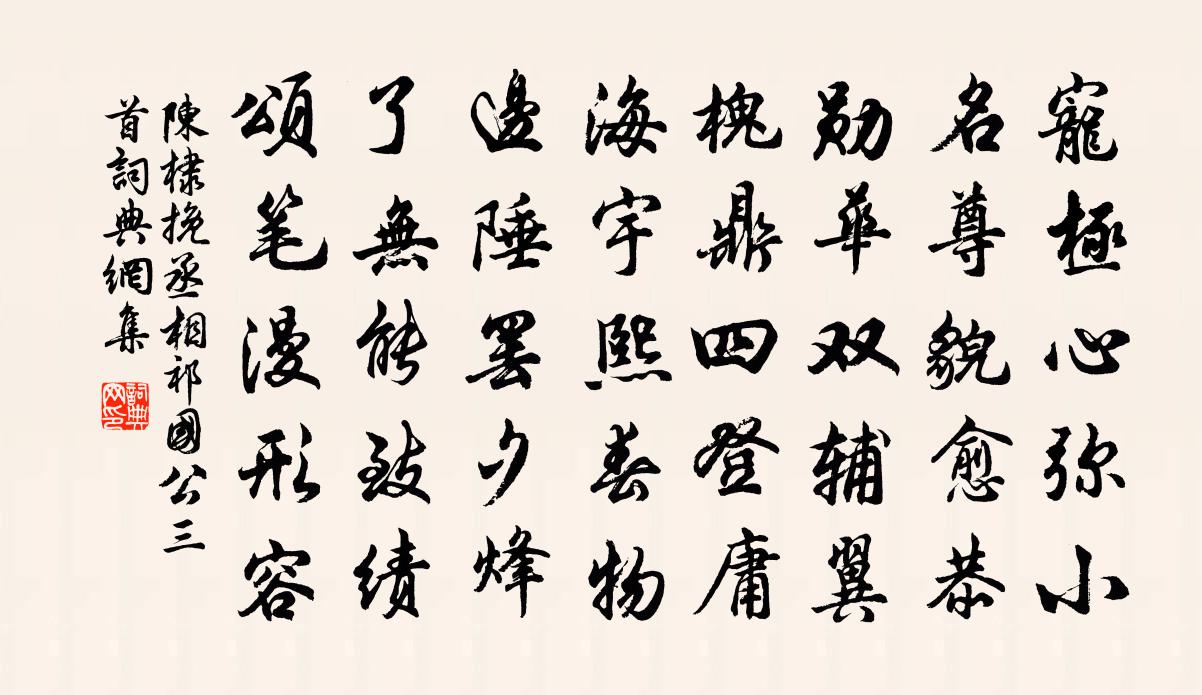 寵極心弥小
名尊貌愈恭
勛華双辅翼
槐鼎四登庸
海宇熙春物
邊陲罢夕烽
了無能致绩
頌笔漫形容
陳棣挽丞相祁國公三
首詞典網集
詞典网印